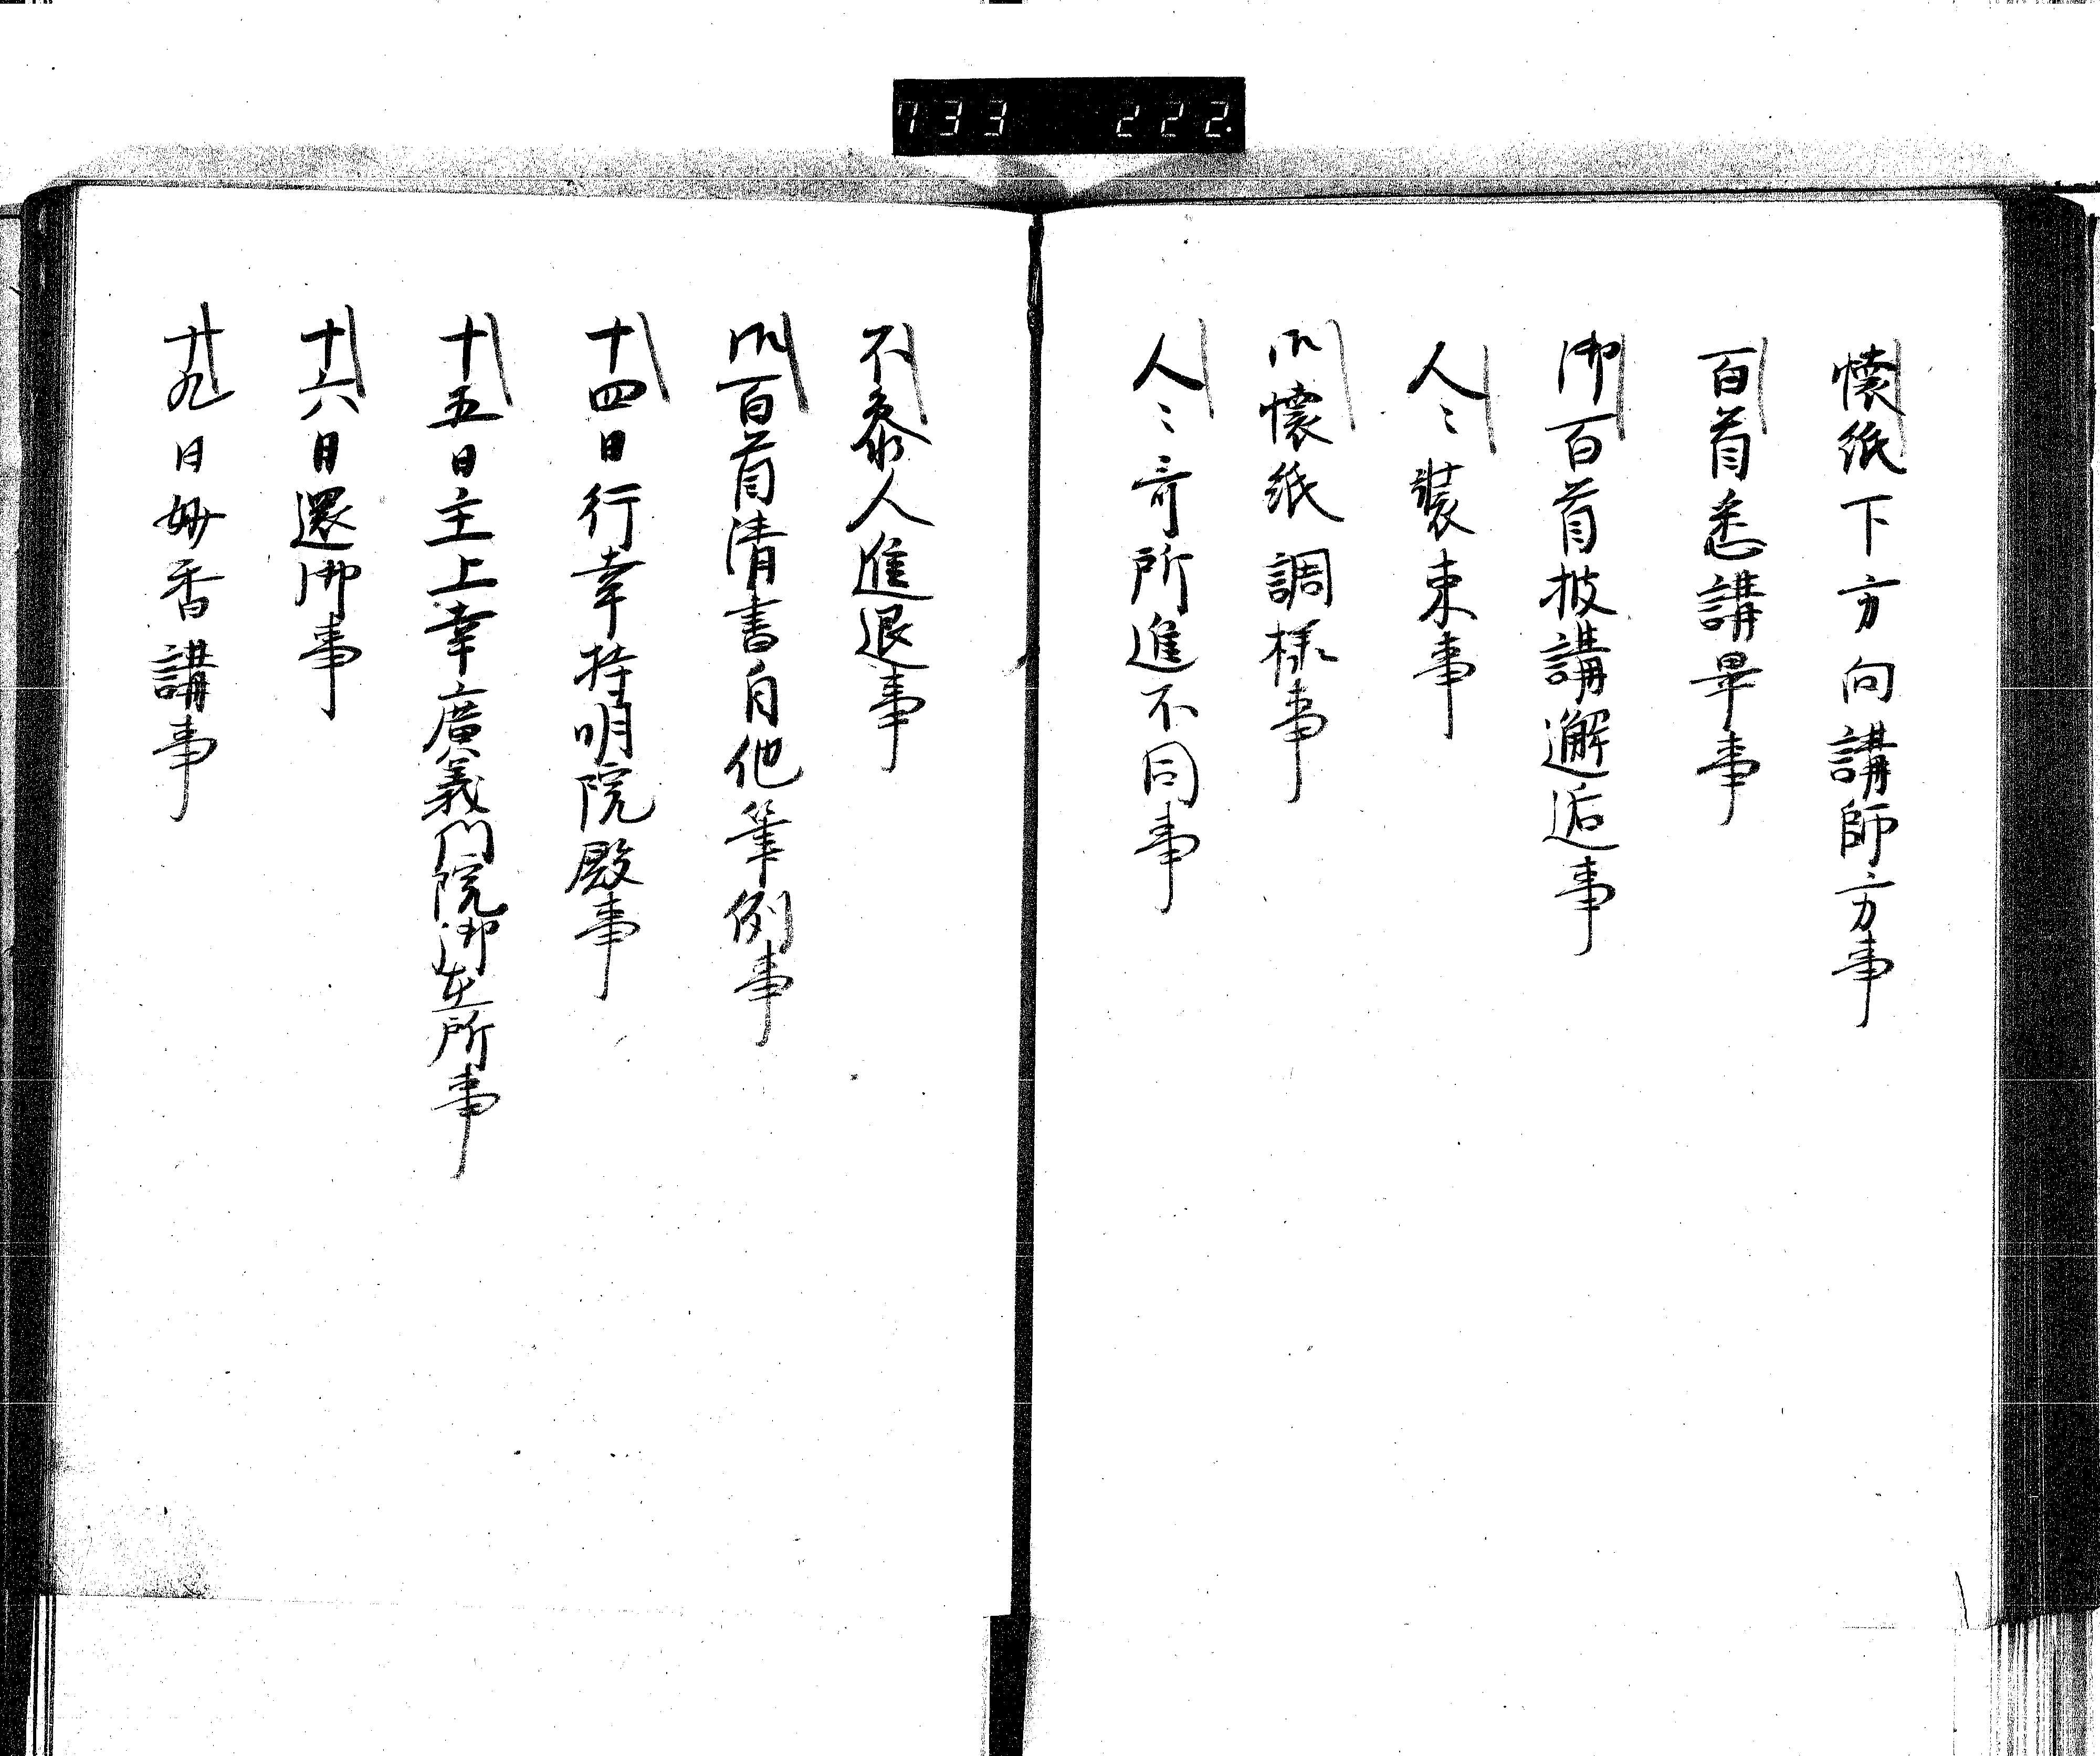 733 222
懐紙下方向講師方事
百首悉講畢事
御百首披講邂逅事
人〻装束事
御懐紙調様事
人〻哥所進不同事
不参人進退事
御百首清書自他筆例事
十四日行幸持明院殿事
十五日主上幸廣義門院御在所事
十六日還御事
廿九日妙香講事